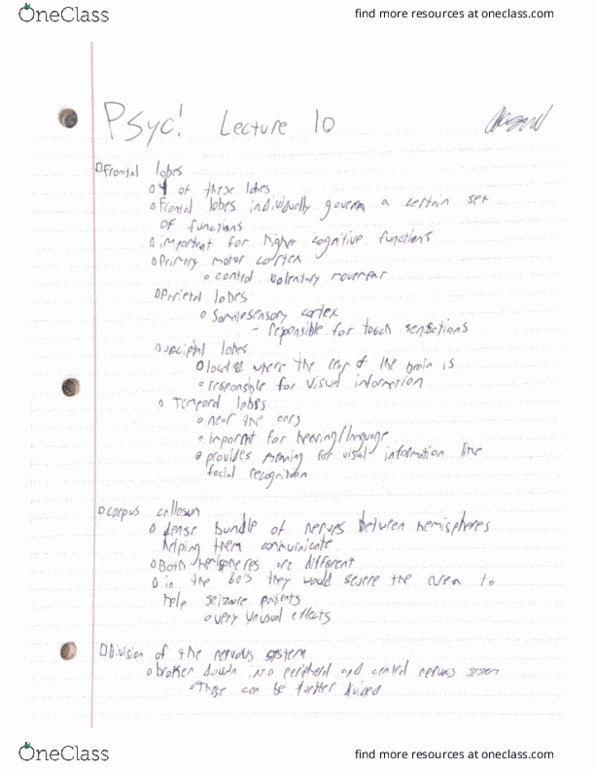 OneClass
find more resources at oneclass.com
Psyc! Lecture 10
Frontal lobes
4 of these lobes
Frontal lobes individually govern a certain set
of functions
important for higher cognitive functions
Primary motor cortex
control volentary movement
Parietal lobes
Somatosensory cortex
- responsible for touch sensations
lobes
where the rear of the brain is
responsible for visual information
Temporal lobes
near the ears
important for hearing/language
provides meaning for visual information like
facial recognition
corpus callosum
dense bundle of nerves between hemispheres
helping them communicate
Both hemispheres are different
in the 60's they would severe the area to
help seizure patients
very unusual effects
Division of the nervous system
broken down into peripheral and central nervous system
These can be further
OneClass
find more resources at oneclass.com